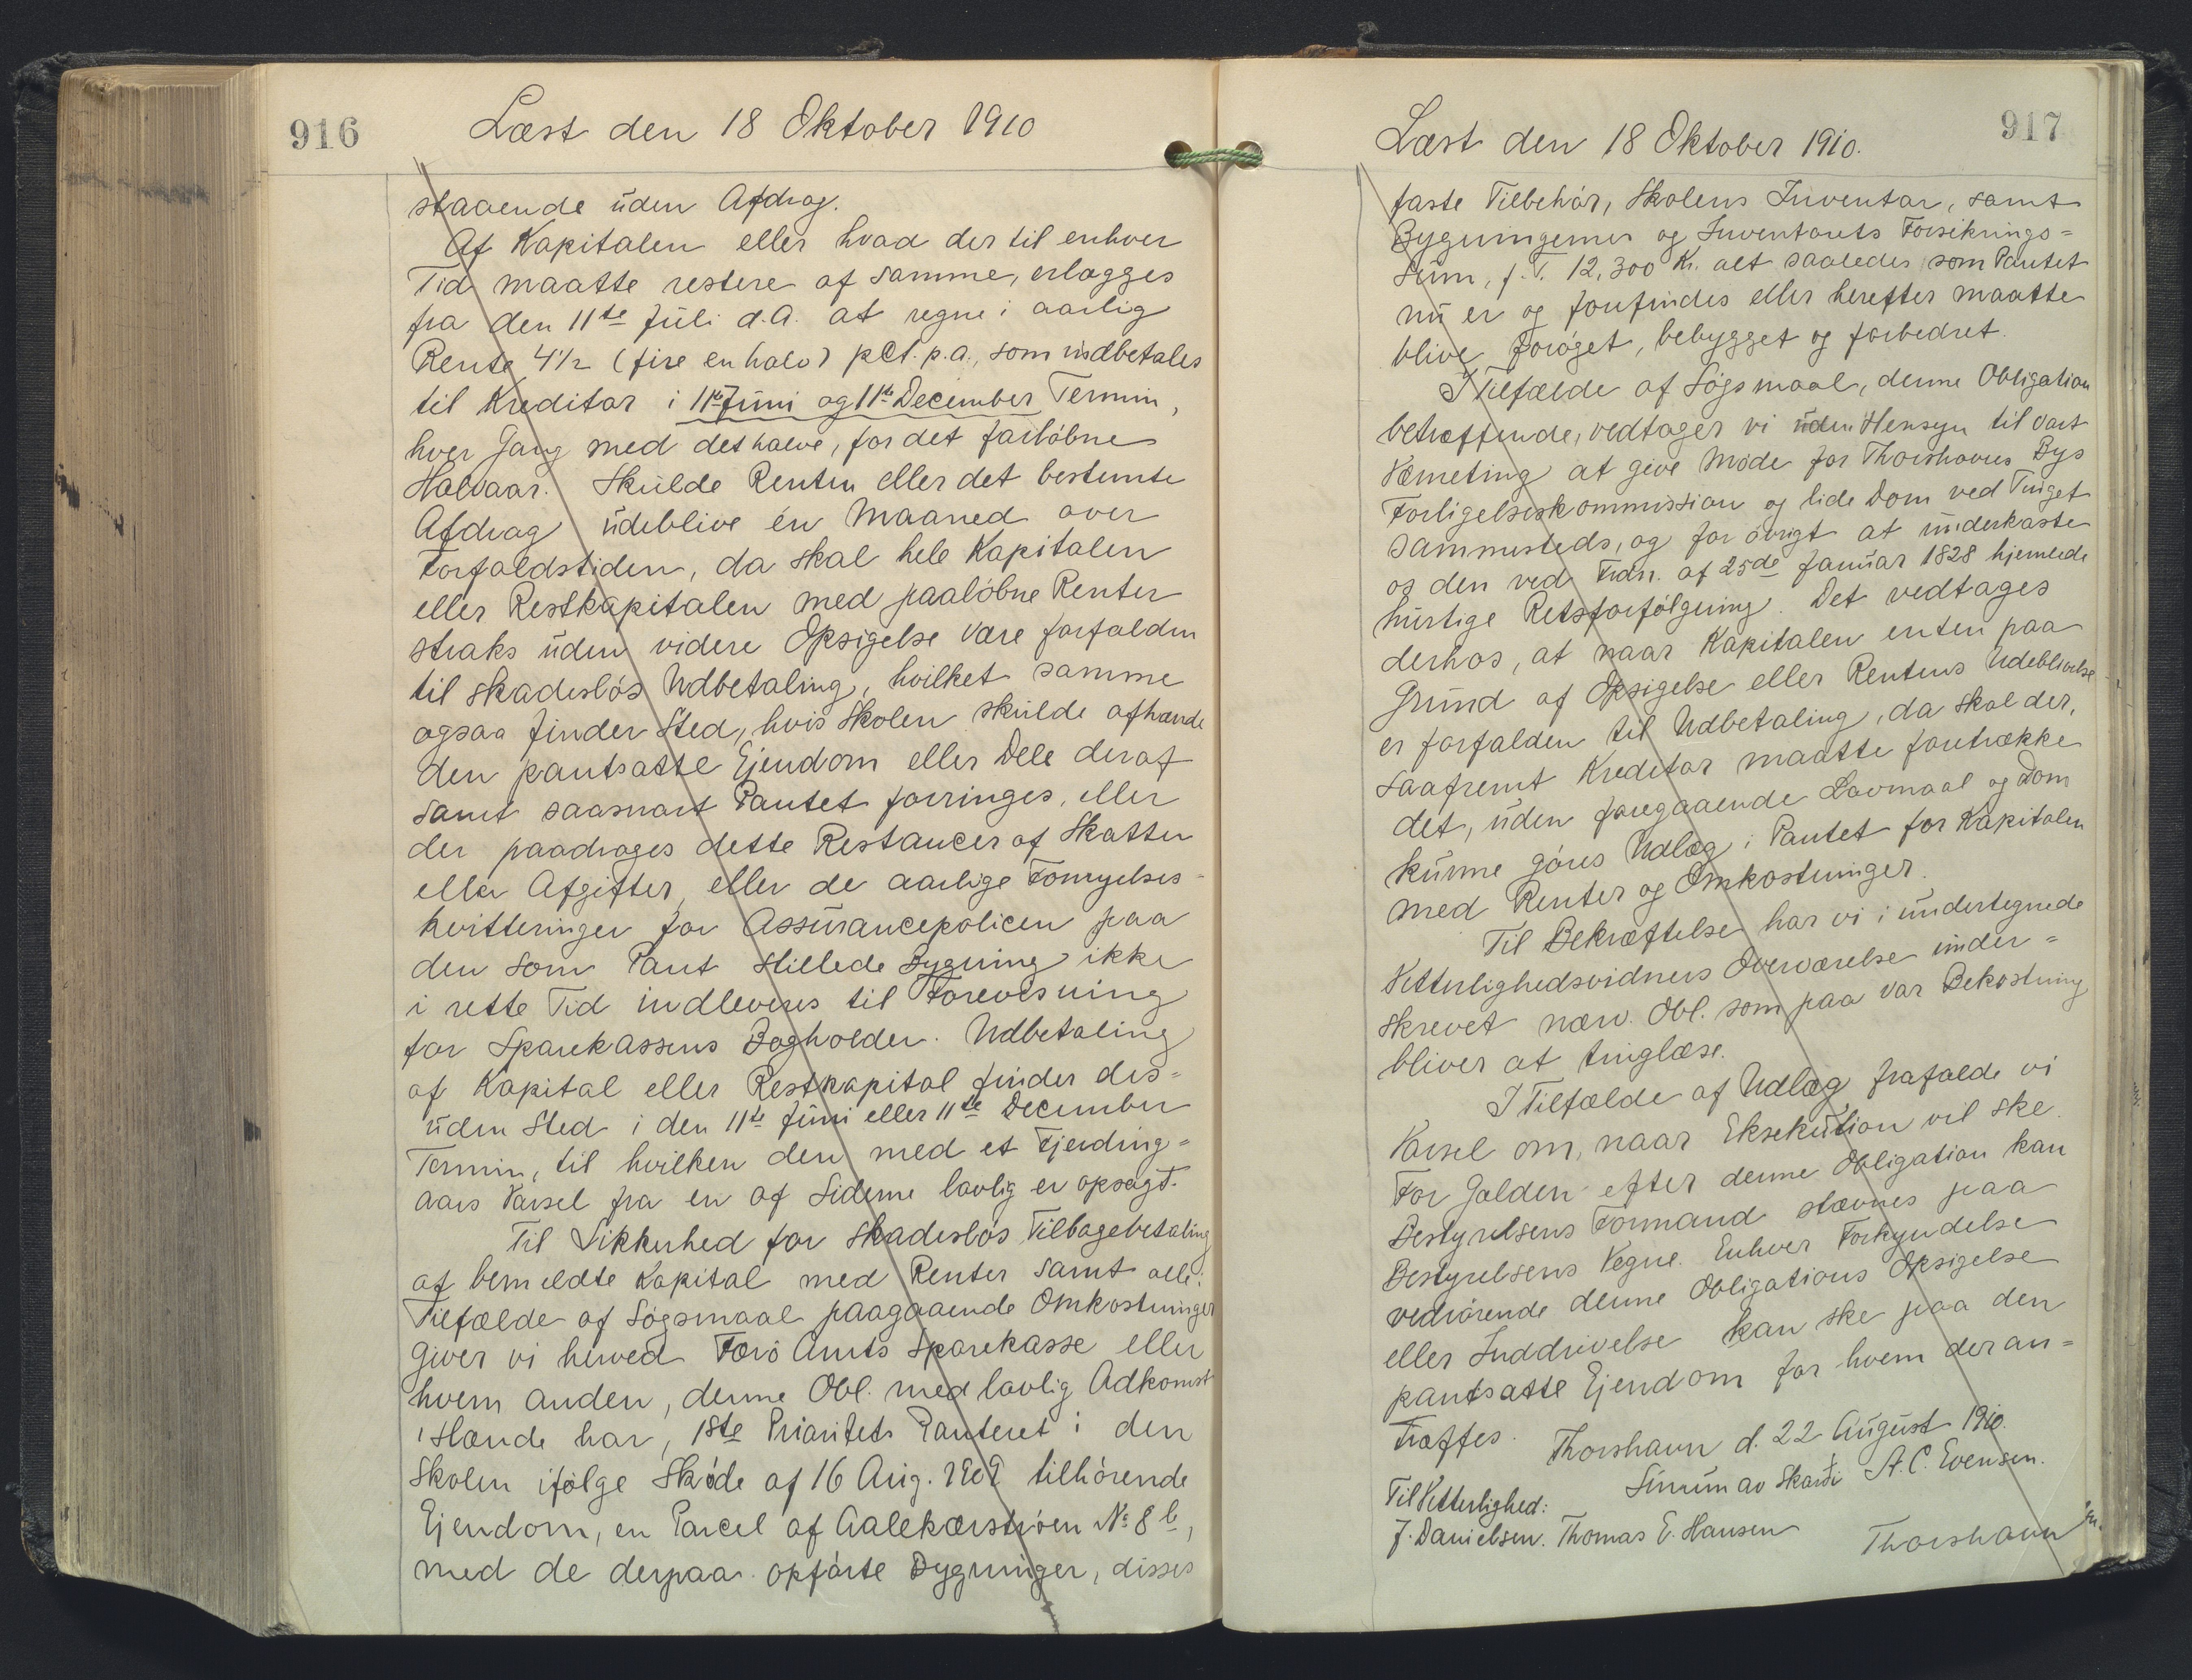 916
Læst den 18 Oktober 1910
staaende uden Afdrag.
Af Kapitalen eller hvad der til enhver
Tid maatte restere af samme, erlægges
fra den 11te Juli d.A. at regne i aarlig
Rente 4½ (fire en halv) pCt. p.a., som indbetales
til Kreditor i 11te Juni og 11te December Termin,
hver Gang med det halve, for det forløbne
Halvaar. Skulde Renten eller det bestemte
Afdrag udeblive én Maaned over
Forfaldstiden, da skal hele Kapitalen
eller Restkapitalen med paaløbne Renter
straks uden videre Opsigelse være forfalden
til skadesløs Udbetaling, hvilket samme
ogsaa finder Sted, hvis Skolen skulde afhænde
den pantsatte Ejendom eller Dele deraf
samt saasnart Pantet forringes, eller
der paadrages dette Restancer af Skatter
eller Afgifter, eller de aarlige Fornyelses-
kvitteringer for Assurancepolicen paa
den som Pant stillede Bygning ikke
i rette Tid indleveres til Forevisning
for Sparekassens Bogholder. Udbetaling
af Kapital eller Restkapital finder des=
uden Sted i den 11te Juni eller 11te December
Termin, til hvilken den med et Fjerding=
aars Varsel fra en af Siderne lovlig er opsagt.
Til Sikkerhed for skadesløs Tilbagebetaling
af bemeldte Kapital med Renter samt alle i
Tilfælde af Søgsmaal paagaaende Omkostninger
giver vi herved Færø Amts Sparekasse eller
hvem anden, denne Obl. med lovlig Adkomst
i Hænde har, 1ste Prioritets Panteret i den
Skolen ifølge Skøde af 16 Aug. 1909 tilhørende
Ejendom, en Parcel af Aalekærstrøen No 8 b,
med de derpaa opførte Bygninger, disses
917
Læst den 18 Oktober 1910.
faste Tilbehør, Skolens Inventar, samt
Bygningernes og Inventarets Forsikrings=
sum, f.T. 12,300 Kr. alt saaledes som Pantet
nu er og forefindes eller herefter maatte
blive forøget, bebygget og forbedret.
I Tilfælde af Søgsmaal, denne Obligation
betræffende, vedtager vi uden Hensyn til vort
Værneting at give Møde for Thorshavns Bys
Forligelseskommission og lide Dom ved Tinget
sammesteds, og for øvrigt at underkaste
os den ved Frdn. af 25de Januar 1828 hjemlede
hurtige Retsforfølgning. Det vedtages
derhos, at naar Kapitalen enten paa
Grund af Opsigelse eller Rentens Udeblivelse
er forfalden til Udbetaling, da skal der,
saafremt Kreditor maatte foretrække
det, uden foregaaende Lovmaal og Dom
kunne gøres Udlæg i Pantet for Kapitalen
med Renter og Omkostninger.
Til Bekræftelse har vi i undertegnede
Vitterlighedsvidners Overværelse under=
skrevet nærv. Obl. som paa vor Bekostning
bliver at tinglæse.
I Tilfælde af Udlæg frafalde vi
Varsel om, naar Eksekution vil ske.
For Gælden efter denne Obligation kan
Bestyrelsens Formand stævnes paa
Bestyrelsens Vegne. Enhver Forkyndelse
vedrørende denne Obligations Opsigelse
eller Inddrivelse kan ske paa den
pantsatte Ejendom for hvem der an=
træffes.
Thorshavn d. 22 August 1910.
Símun av Skarði A.C. Evensen.
Til Vitterlighed:
J. Danielsen. Thomas E. Hansen
Thorshavn